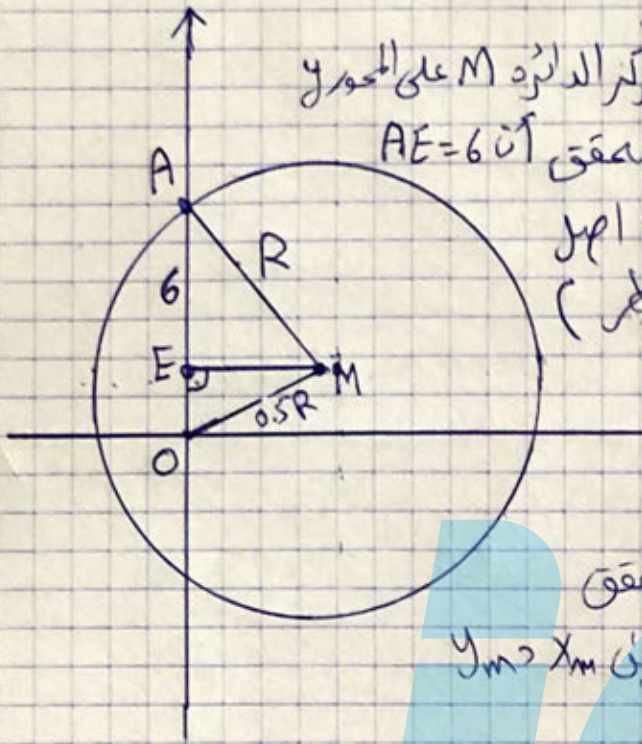 كز الدائرة M على المحور y
حقق أن AE=6
A
R
6
E
M
0.5R
O
حقق
ym و xm